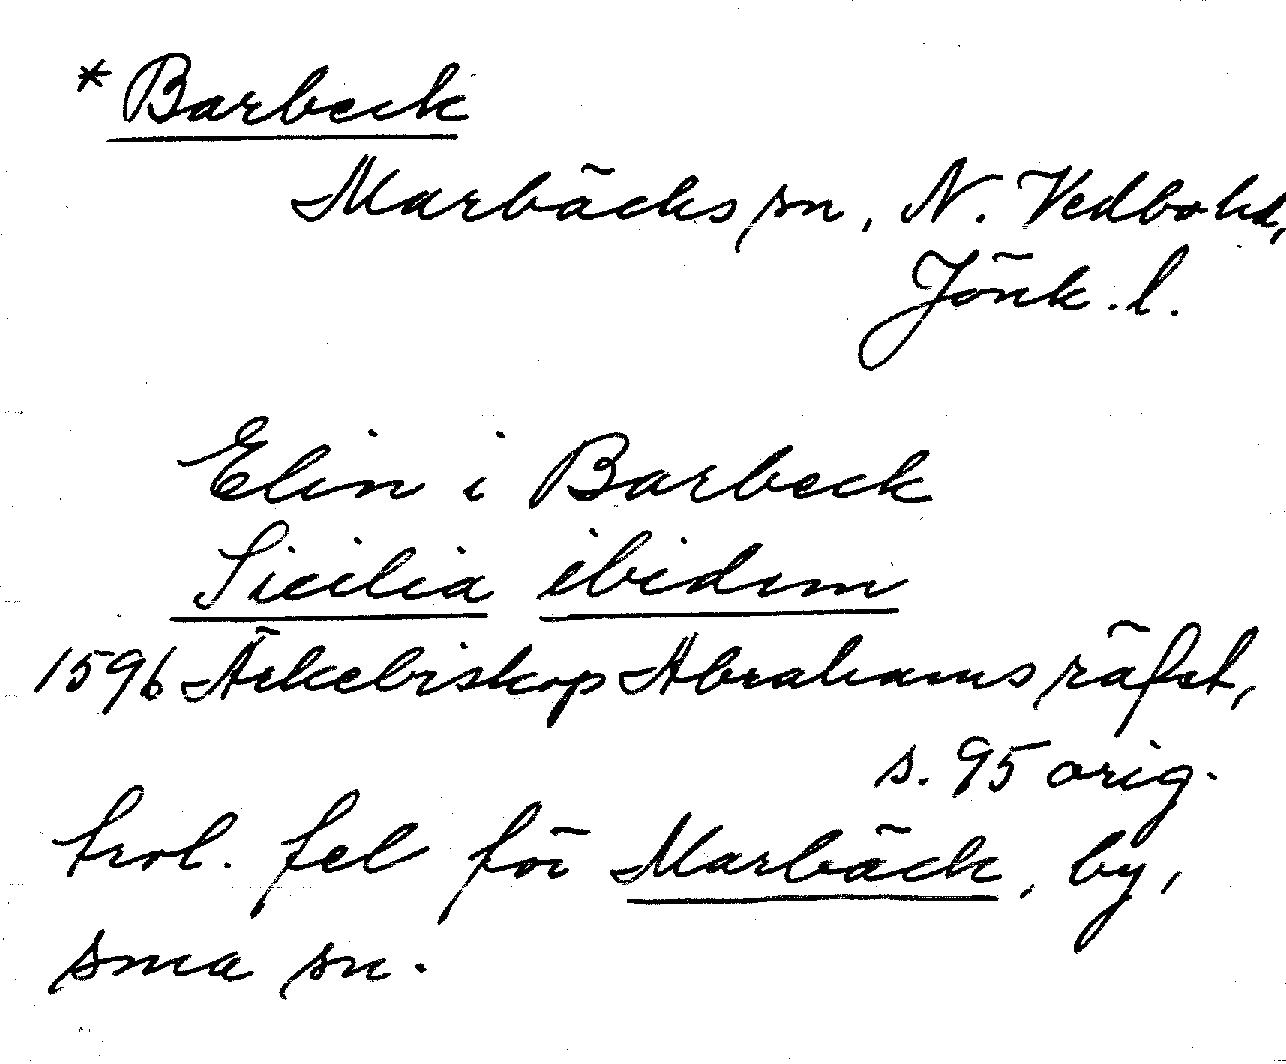 *Barbeck
Marbäcks sn, N. Vedbo hd,
Jönk. l.
Elin i Barbeck
Sicilia ibidem
1596 Ärkebiskop Abrahams räfst,
s. 95 orig.
trol. fel för Marbäck, by,
sma sn.